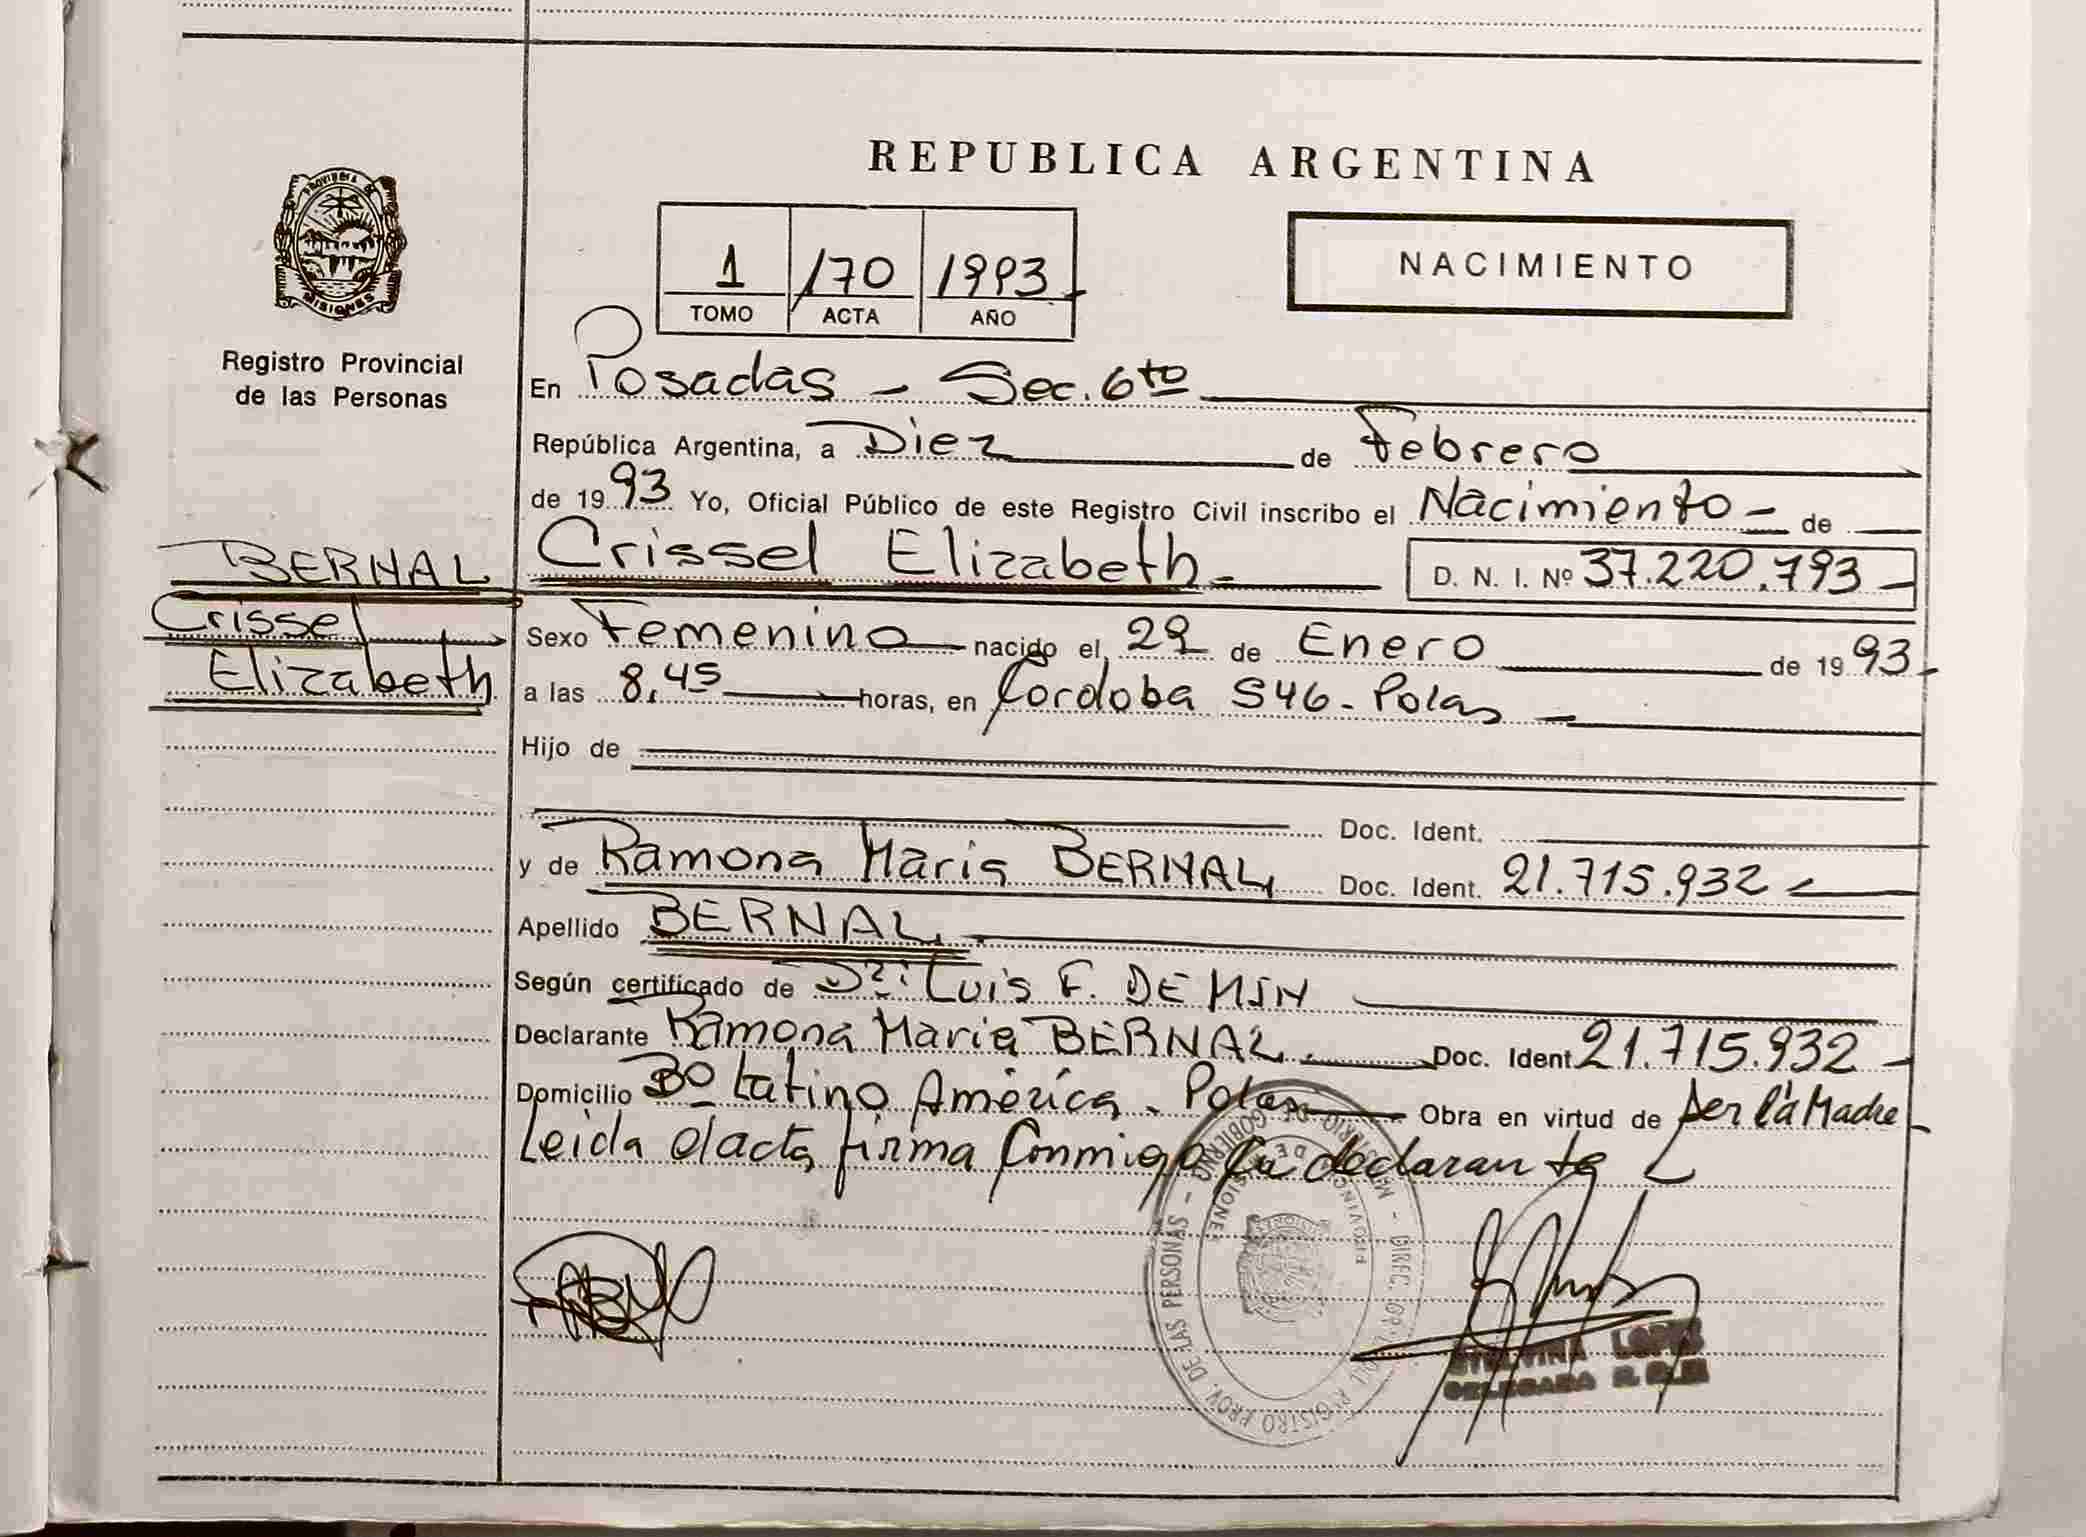 REPUBLICA ARGENTINA
PROVINCIA DE
MISIONES
Registro Provincial
de las Personas
1 170 1993
TOMO ACTA AÑO
NACIMIENTO
En Posadas - Sec. 6to
República Argentina, a Diez de Febrero
de 1993 Yo, Oficial Público de este Registro Civil inscribo el Nacimiento - de
BERNAL
Crissel
Elizabeth
Crissel Elizabeth D. N. I. Nº 37.220.793
Sexo Femenino nacido el 29 de Enero de 1993
a las 8,45 horas, en Cordoba 546 - Pdas
Hijo de
Doc. Ident.
y de Ramona Maria BERNAL Doc. Ident. 21.715.932
Apellido BERNAL
Según certificado de Dr: Luis F. DEMIN
Declarante Ramona Maria BERNAL Doc. Ident 21.715.932
Domicilio Bº Latino América - Pdas Obra en virtud de ser la Madre
Leida el acta firma conmigo la declarante
REGISTRO PROV. DE LAS PERSONAS - MINISTERIO DE GOBIERNO
PROVINCIA DE MISIONES
LOPEZ
DELEGADA